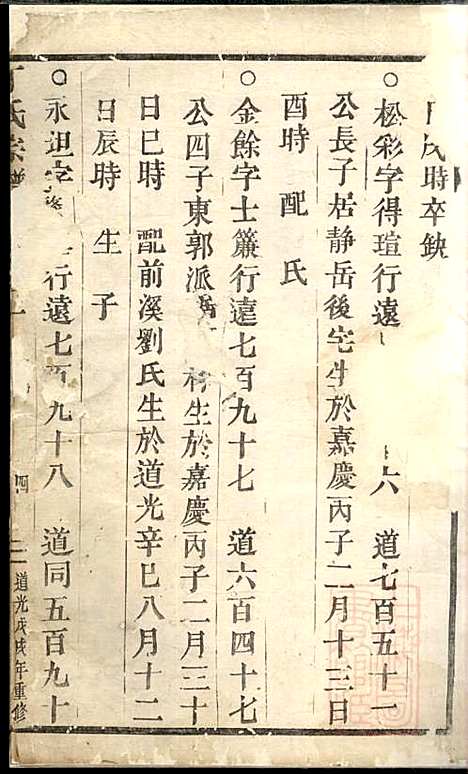 戌時卒缺
○松彩字得瑄行遠 六 道七百五十一
公長子居静岳後宅生於嘉慶丙子二月十三日
酉時 配 氏
○金餘字士簾行遠七百九十七 道六百四十七
公四子東郭派 生於嘉慶丙子二月三十
日巳時 配前溪劉氏生於道光辛巳八月十二
日辰時 生 子
○永坦字 行遠七百九十八 道同五百九十
氏宗譜 四 道光戊戌年重修